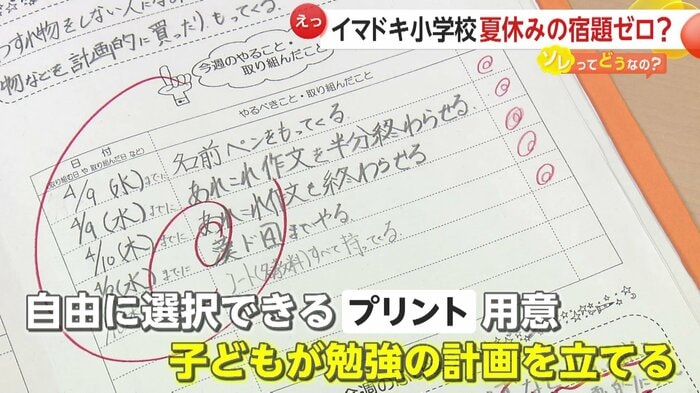 えっ
イマドキ小学校 夏休みの宿題ゼロ?
ソレってどうなの?
物などを計画的に買ったり、もってくる。
今週のやること・
取り組んだこと
日付
(取り組む日や取り組んだ日など)
やるべきこと・取り組んだこと
4/9(水)までに 名前ペンをもってくる
4/9(水)までに あれこれ作文を半分終わらせる
4/10(木)までに あれこれ作文を終わらせる
までに
までやる
すべて持ってくる
自由に選択できる プリント 用意
子どもが勉強の計画を立てる